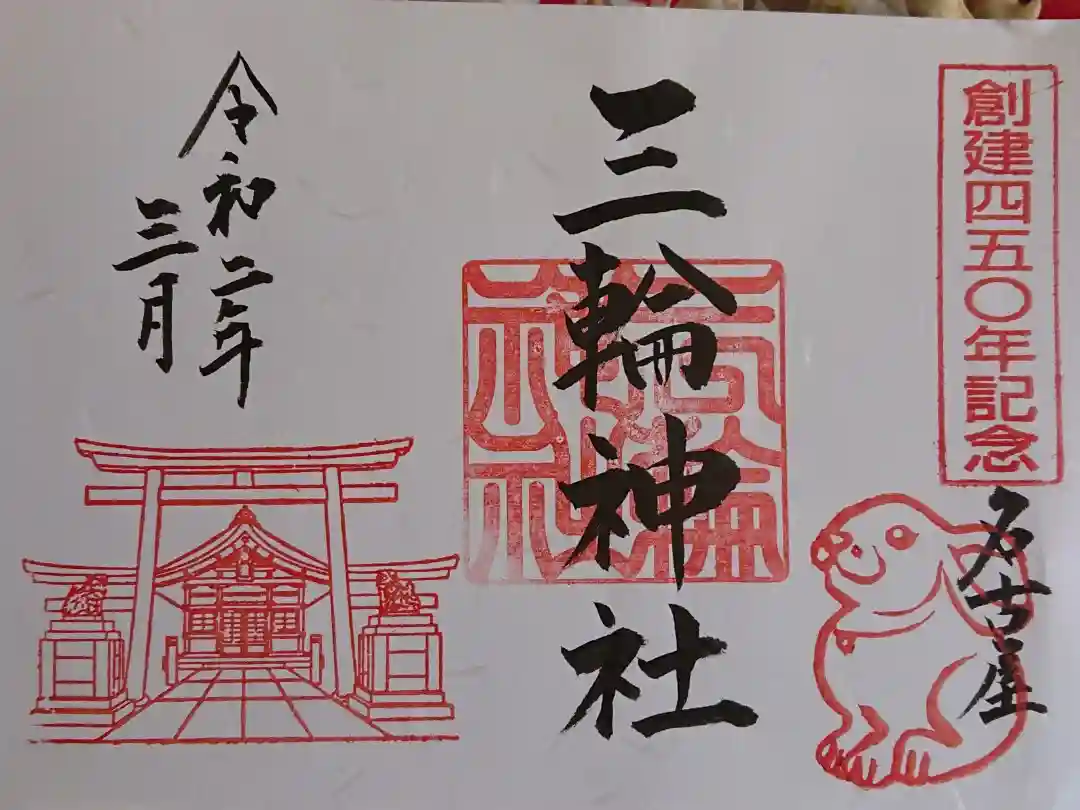 創建四五〇年記念
名古屋
三輪神社
令和二年
三月